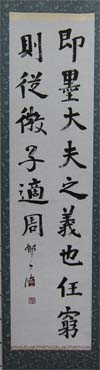 即墨大夫之義也任窮
則從微子適周